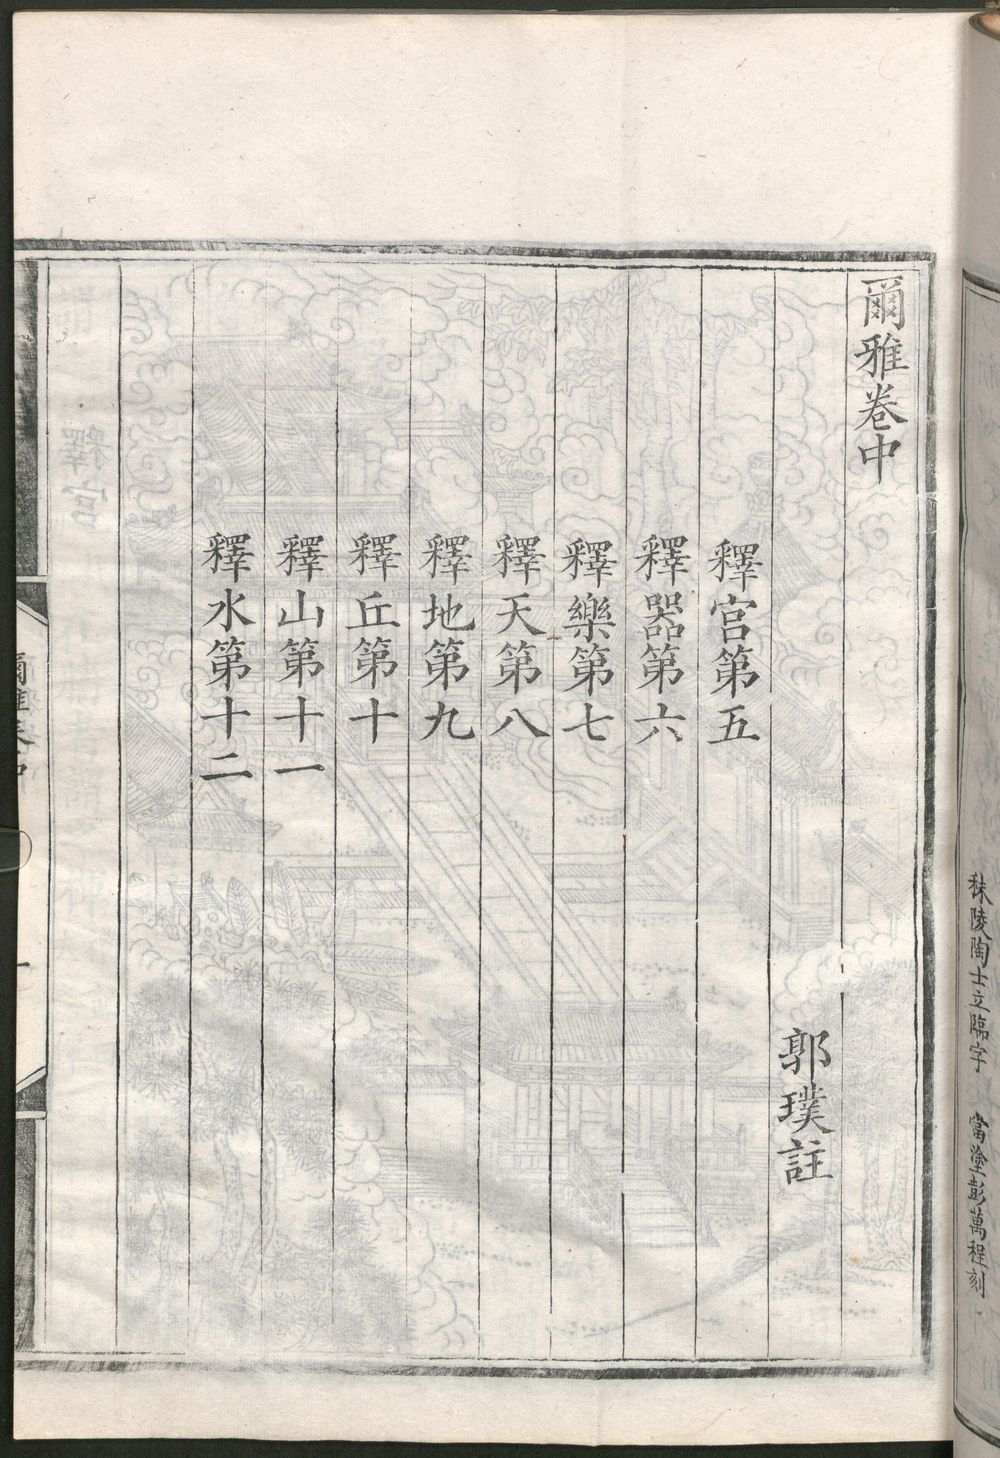 爾雅卷中
郭璞註
釋宮第五
釋器第六
釋樂第七
釋天第八
釋地第九
釋丘第十
釋山第十一
釋水第十二
爾雅卷中
一
秣陵陶士立臨字 當塗彭萬程刻